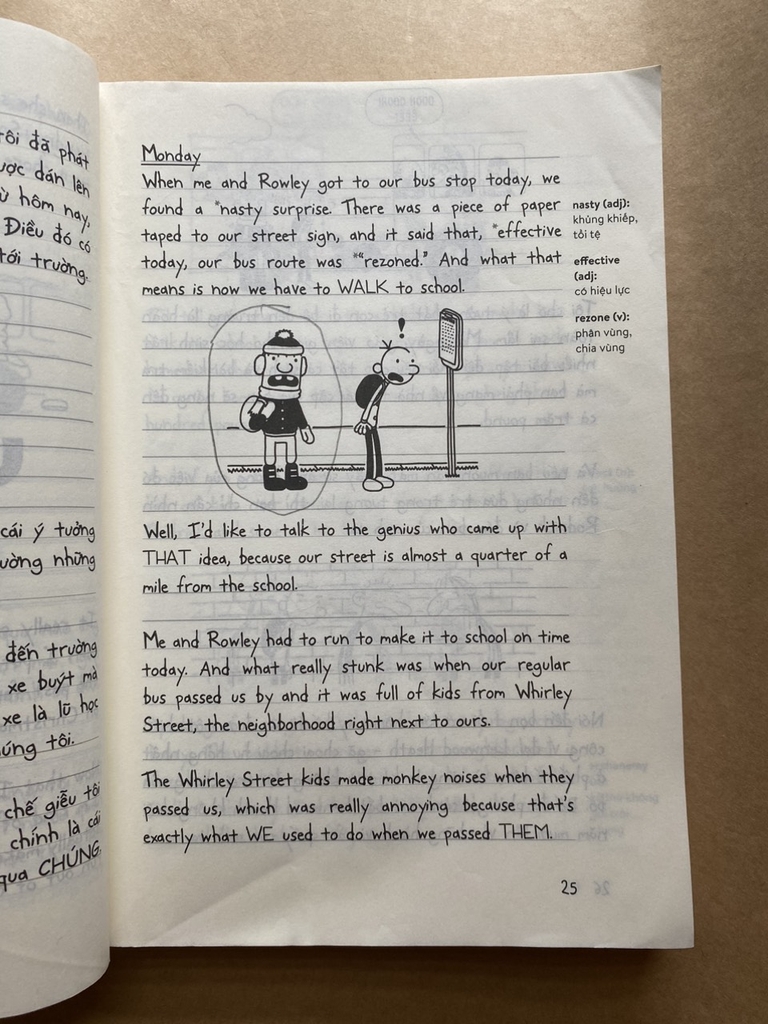 rôi đã phát
ược dán lên
ừ hôm nay,
Điều đó có
tới trường.
cái ý tưởng
ường những
đến trường
xe buýt mà
xe là lũ học
úng tôi.
chế giễu tôi
chính là cái
qua CHÚNG.
Monday
When me and Rowley got to our bus stop today, we
found a *nasty surprise. There was a piece of paper
taped to our street sign, and it said that, *effective
today, our bus route was *"rezoned." And what that
means is now we have to WALK to school.
nasty (adj):
khủng khiếp,
tồi tệ
effective
(adj):
có hiệu lực
rezone (v):
phân vùng,
chia vùng
!
Well, I'd like to talk to the genius who came up with
THAT idea, because our street is almost a quarter of a
mile from the school.
Me and Rowley had to run to make it to school on time
today. And what really stunk was when our regular
bus passed us by and it was full of kids from Whirley
Street, the neighborhood right next to ours.
The Whirley Street kids made monkey noises when they
passed us, which was really annoying because that's
exactly what WE used to do when we passed THEM.
25